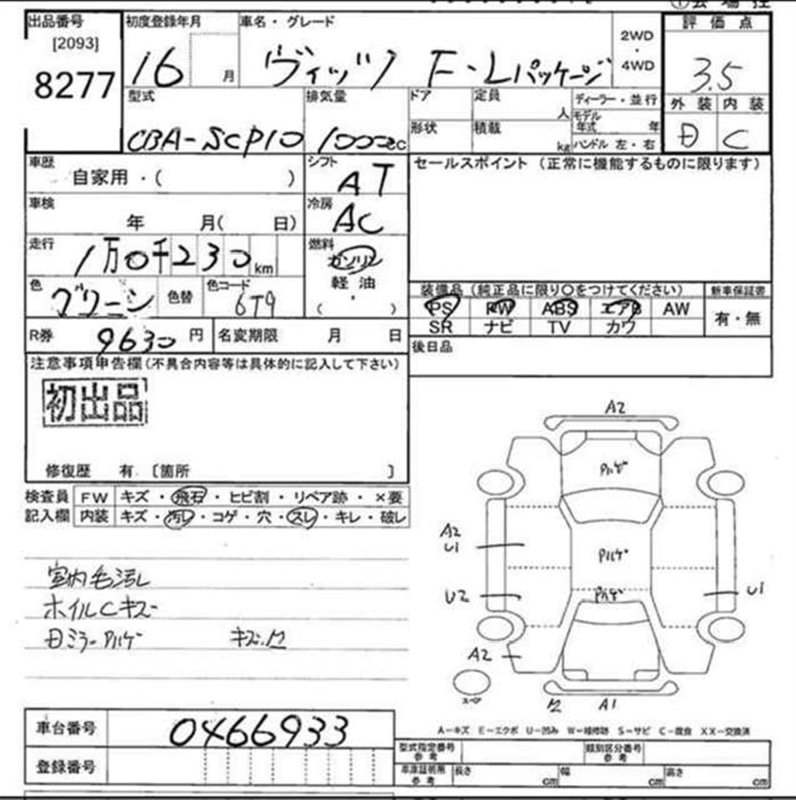 出品番号 初度登録年月 車名・グレード 評価点
[2093]
8277 16 月 ヴィッツ F・Lパッケージ 2WD・4WD 3.5
外装 内装
D C
型式 排気量 ドア 定員 人 ディーラー・並行
CBA-SCP10 1000cc 形状 積載 kg モデル年式 年
ハンドル 左・右
車歴 シフト セールスポイント (正常に機能するものに限ります)
自家用・( ) AT
車検 冷房
年 月( 日) AC
走行 燃料
1万0千230km ガソリン
軽油
( )
色 色替 色コード
グリーン 6T9
装備品 (純正品に限り〇をつけてください) 新車保証書
PS PW ABS エアB AW 有・無
SR ナビ TV カワ
R券 9630円 名変期限 月 日 後日品
注意事項申告欄(不具合内容等は具体的に記入して下さい)
初出品
修復歴 有.〔箇所 〕
検査員 FW キズ・飛石・ヒビ割・リペア跡・×要
記入欄 内装 キズ・汚レ・コゲ・穴・スレ・キレ・破レ
室内毛汚レ
ホイルCキズ
Dミラーハゲ キズ.
A2
Pハゲ
A2
U1
Pハゲ
Pハゲ
U2
U1
A2
A1
A−キズ E−エクボ U−凹み W−補修跡 S−サビ C−腐食 XX−交換済
車台番号 0466933
登録番号
型式指定番号 参考 類別区分番号 参考
車庫証明用 参考 長さ cm 幅 cm 高さ cm